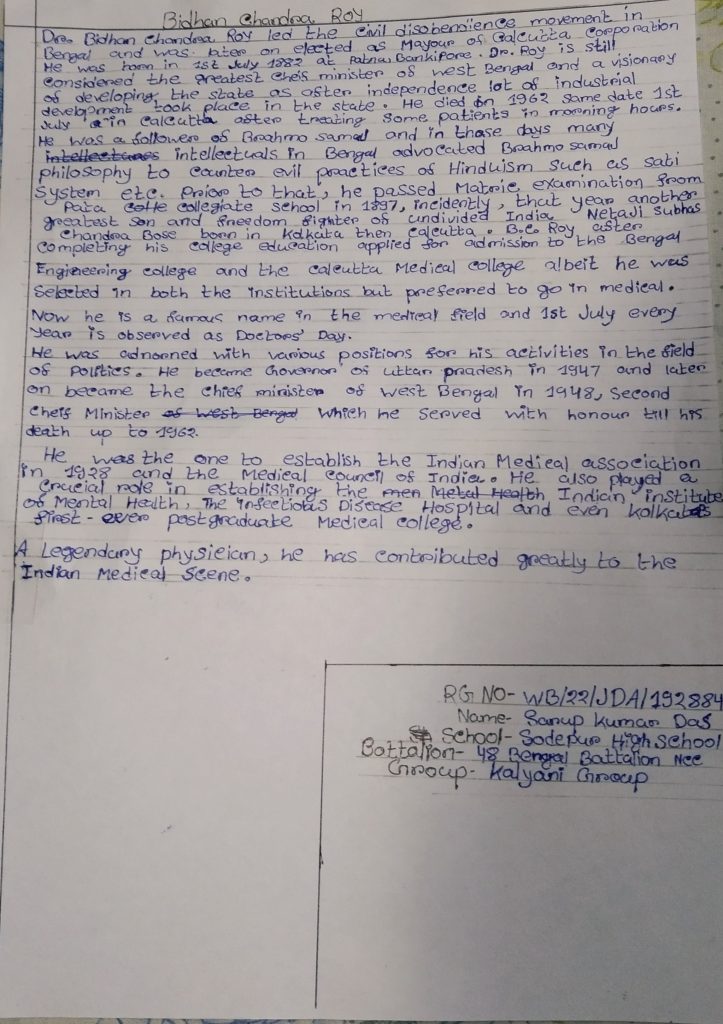 Bidhan Chandra Roy
Dr. Bidhan Chandra Roy led the civil disobendience movement in
Bengal and was later on elected as Mayour of Calcutta Corporation
He was born in 1st July 1882 at Patna Bankipore. Dr. Roy is still
Considered the greatest cheis minister of west Bengal and a visionary
of developing the state as after independence lot of industrial
development took place in the state. He died in 1962 same date 1st
July in Calcutta after treating some patients in morning hours.
He was a follower of Brahmo samaj and in those days many
intellectuals in Bengal advocated Brahmo samaj
philosophy to counter evil practices of Hinduism such as sati
System etc. Prior to that, he passed Matric examination from
Pata collegiate school in 1897, incidently, that year another
greatest son and freedom fighter of undivided India Netaji Subhas
Chandra Bose born in Kolkata then Calcutta. B.C. Roy after
completing his college education applied for admission to the Bengal
Engineering college and the calcutta Medical college albeit he was
Selected in both the institutions but preferred to go in medical.
Now he is a famous name in the medical field and 1st July every
Year is observed as Doctors' Day.
He was adnorned with various positions for his activities in the field
of Politics. He became Governor of uttar pradesh in 1947 and later
on became the Chief minister of west Bengal in 1948, Second
Cheif Minister of West Bengal Which he Served with honour till his
death up to 1962.
He was the one to establish the Indian Medical association
in 1928 and the Medical council of India. He also played a
Crucial role in establishing the Metal Health Indian institute
of Mental Health, The infectious Disease Hospital and even Kolkatas
first-ever postgraduate Medical college.
A Legendary physician, he has contributed greatly to the
Indian Medical Scene.
RG NO- WB/22/JDA/192884
Name- Sanup Kumar Das
School- Sodepur High School
Battalion- 48 Bengal Battalion Ncc
Group- Kalyani Group